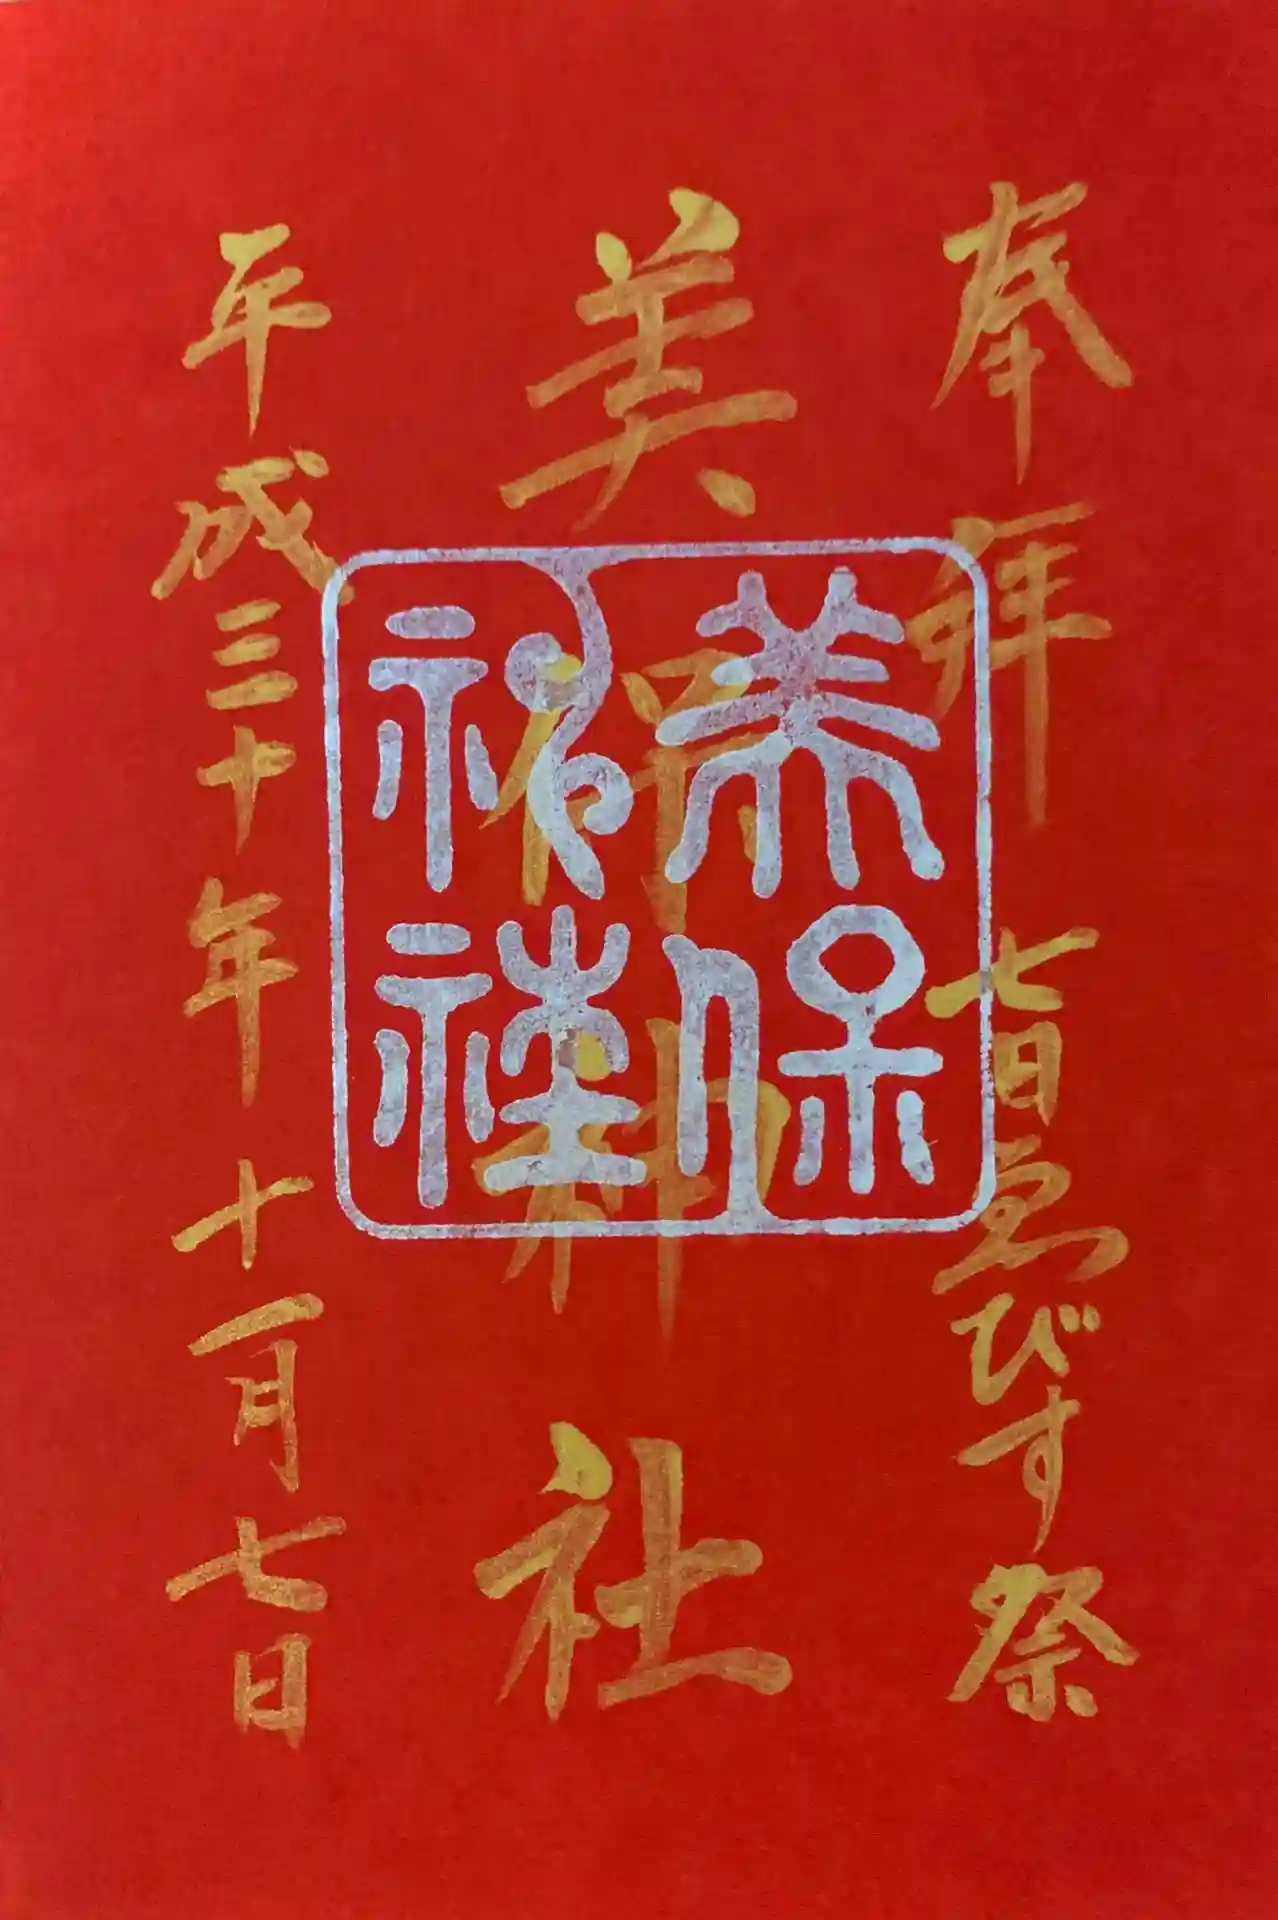 奉拝 七日ゑびす祭
美保神社
平成三十年十一月七日
美保
神社